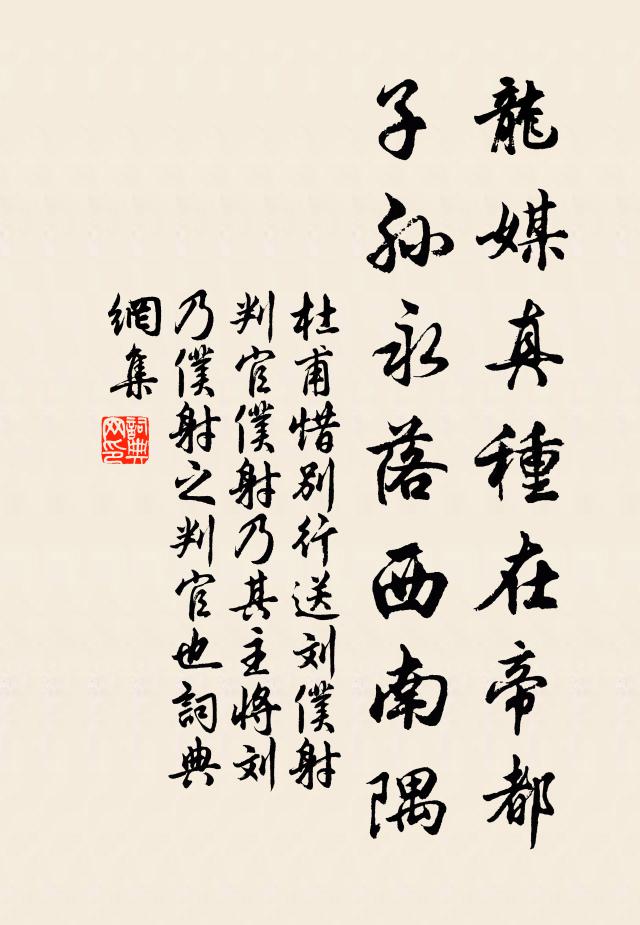 龍媒真種在帝都
子孫永落西南隅
杜甫惜別行送刘僕射
判官僕射乃其主将刘
乃僕射之判官也詞典
網集
詞典
网印